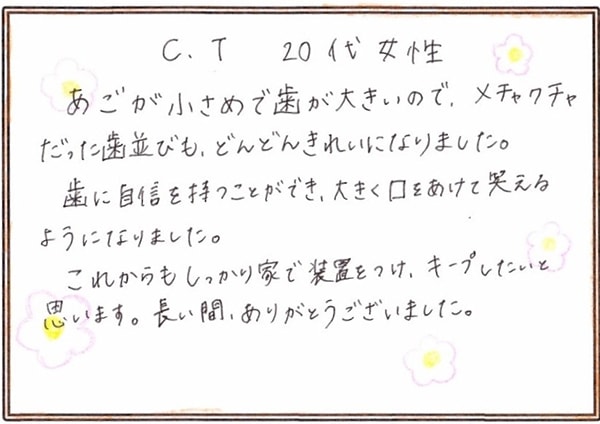 C.T 20代女性
あごが小さめで歯が大きいので、メチャクチャ
だった歯並びも、どんどんきれいになりました。
歯に自信を持つことができ、大きく口をあけて笑える
ようになりました。
これからもしっかり家で装置をつけ、キープしたいと
思います。長い間、ありがとうございました。